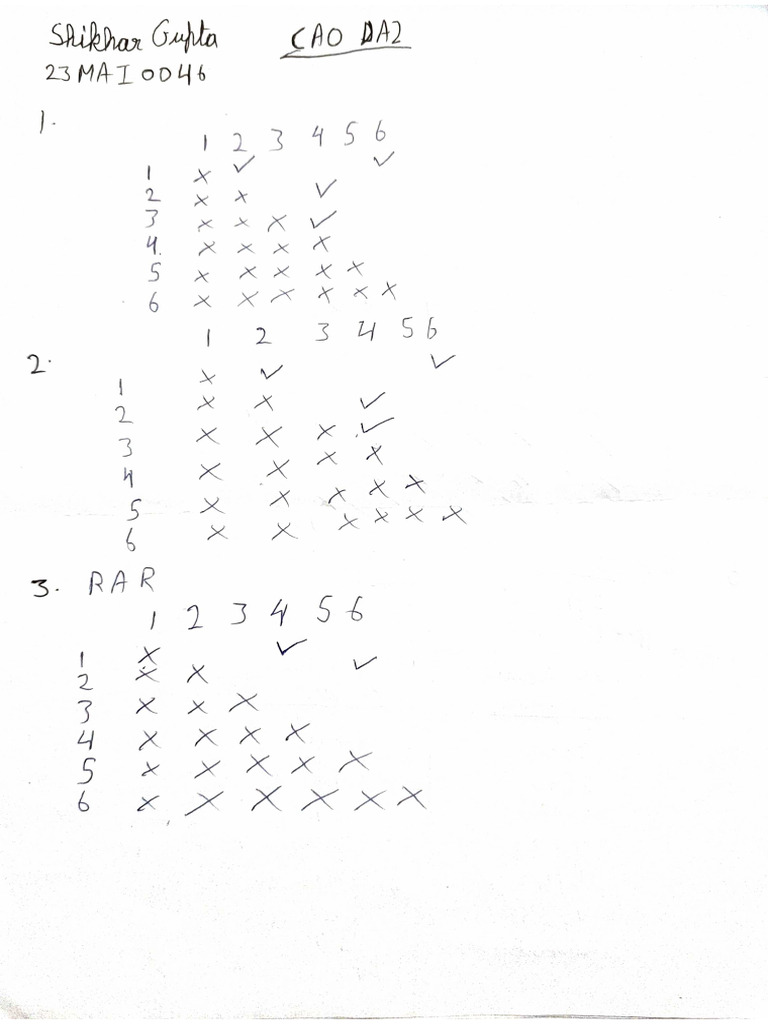 Shikhar Gupta CAO DA2
23MAI0046
1.
1 2 3 4 5 6
1 × ✓ ✓
2 × × ✓
3 × × × ✓
4. × × × ×
5 × × × × ×
6 × × × × × ×
1 2 3 4 5 6
2.
1 × ✓ ✓
2 × × ✓
3 × × × ✓
4 × × × ×
5 × × × × ×
6 × × × × × ×
3. RAR
1 2 3 4 5 6
1 × ✓
2 × × ✓
3 × × ×
4 × × × ×
5 × × × × ×
6 × × × × × ×